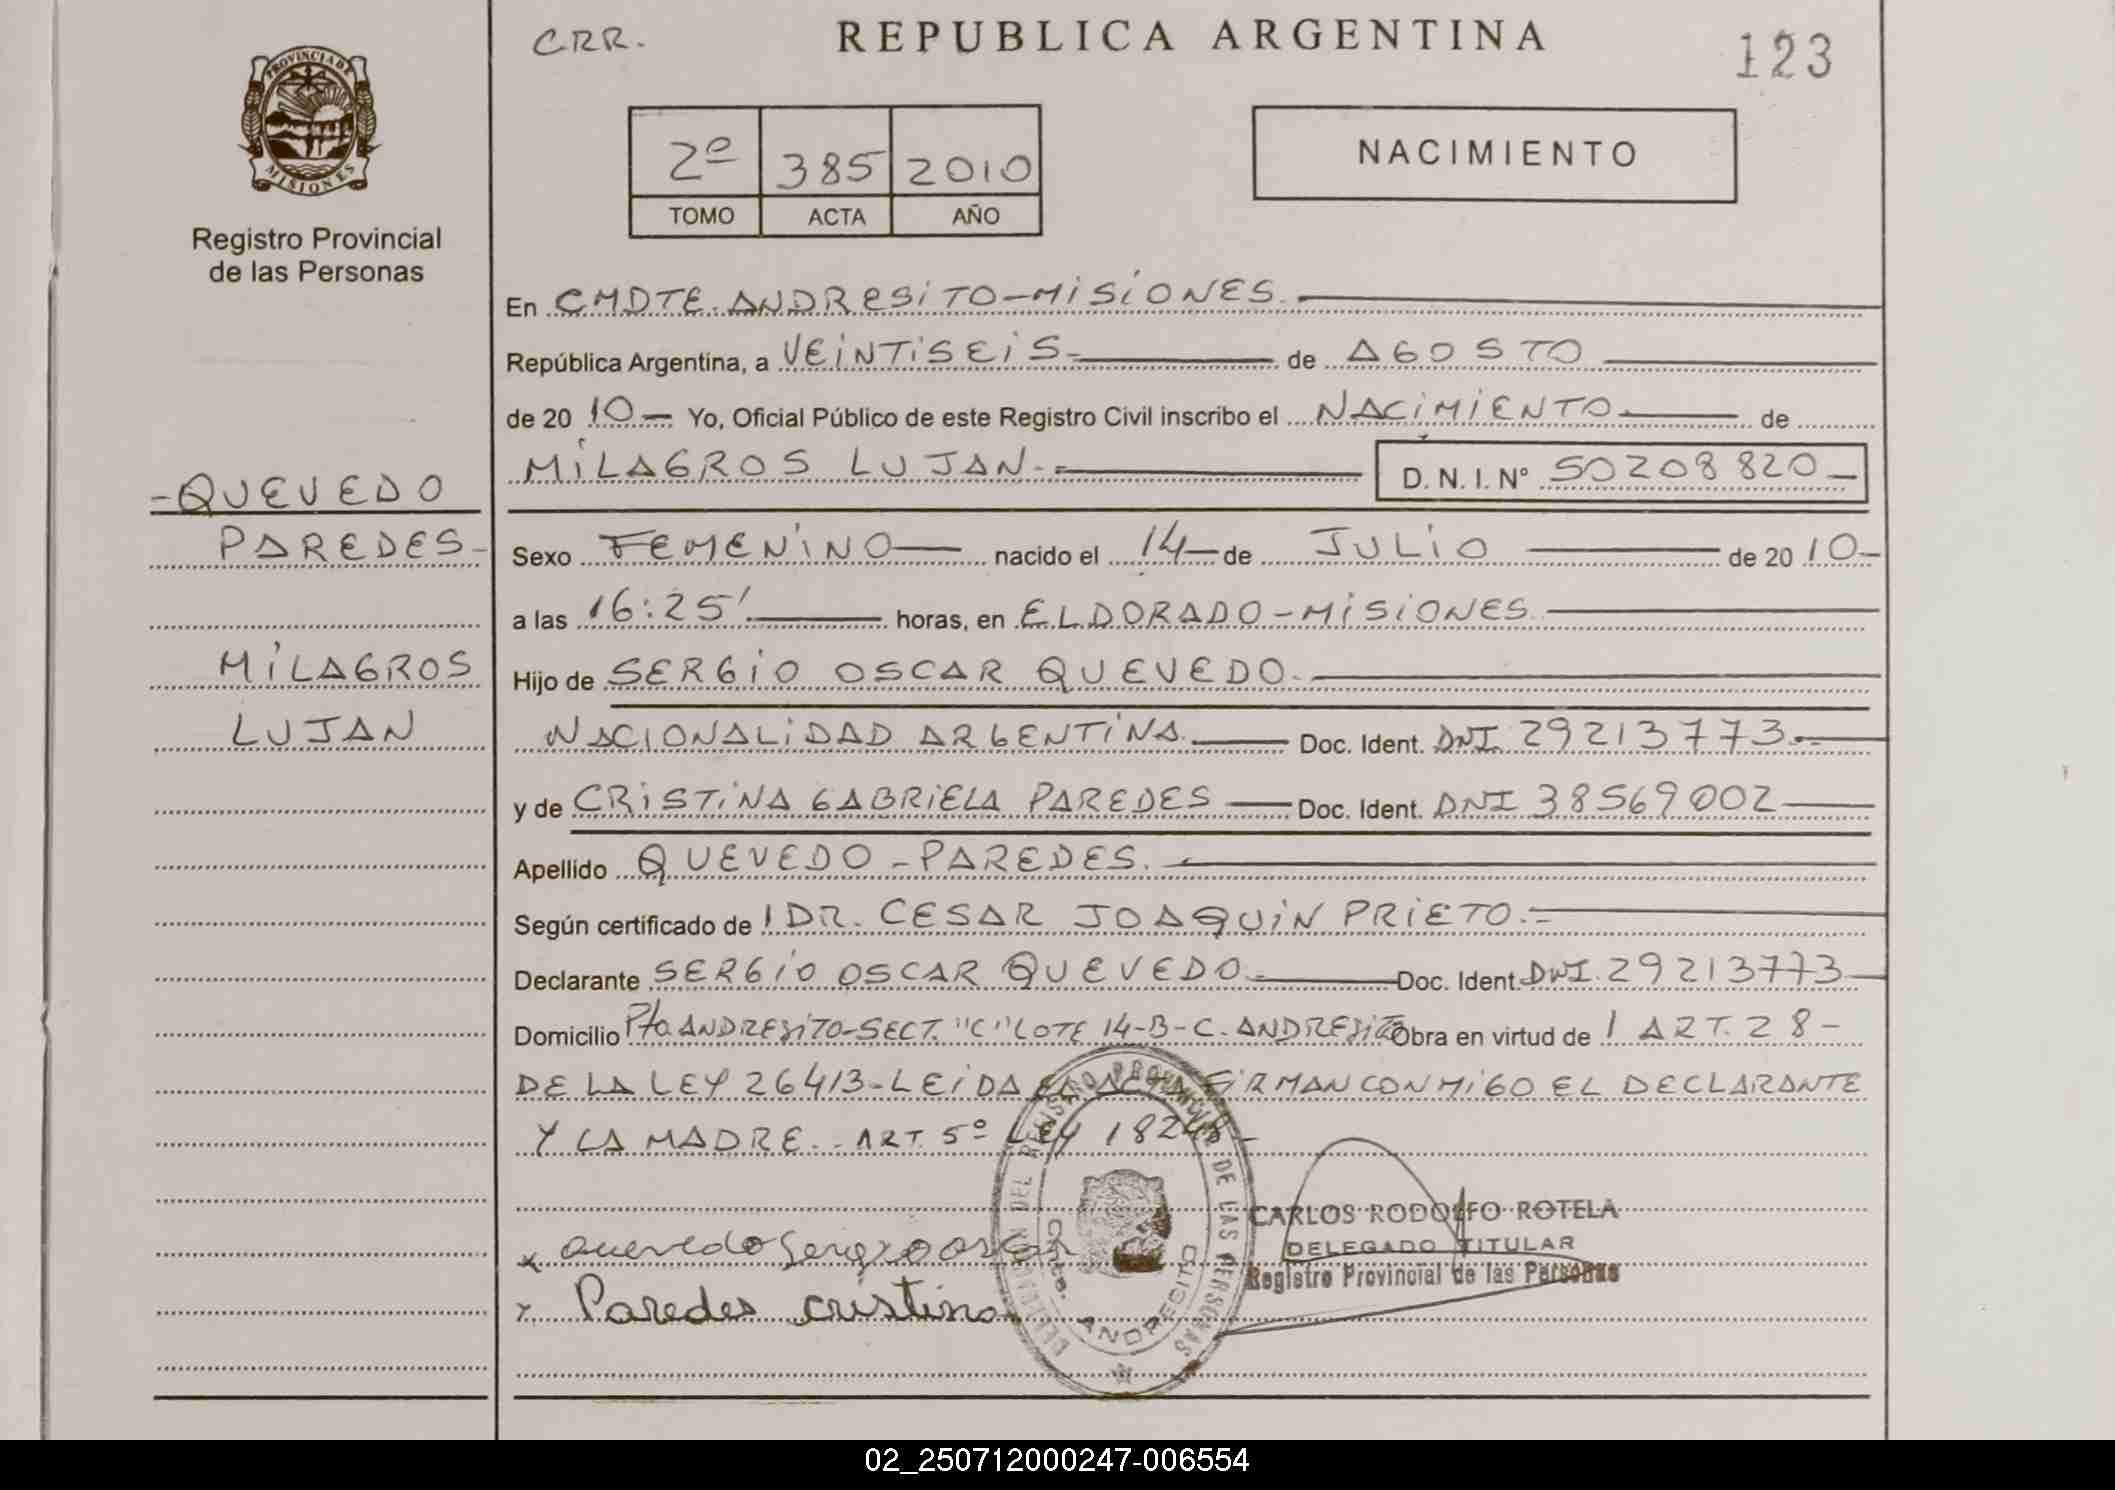 CRR.
REPUBLICA ARGENTINA
123
PROVINCIA DE
MISIONES
2º 385 2010
TOMO ACTA AÑO
NACIMIENTO
Registro Provincial
de las Personas
En CMDTE. ANDRESITO-MISIONES.
República Argentina, a VEINTISEIS.- de AGOSTO
de 20 10- Yo, Oficial Público de este Registro Civil inscribo el NACIMIENTO de
MILAGROS LUJAN.-
D. N. I. Nº 50208820-
-QUEVEDO
PAREDES-
MILAGROS
LUJAN
Sexo FEMENINO nacido el 14 de JULIO de 20 10-
a las 16:25' horas, en ELDORADO-MISIONES.
Hijo de SERGIO OSCAR QUEVEDO.
NACIONALIDAD ARGENTINA. Doc. Ident. DNI. 29213773.-
y de CRISTINA GABRIELA PAREDES Doc. Ident. DNI 38569002
Apellido QUEVEDO-PAREDES.-
Según certificado de 1 DR. CESAR JOAQUIN PRIETO.-
Declarante SERGIO OSCAR QUEVEDO.- Doc. Ident. DNI. 29213773
Domicilio P/O ANDRESITO-SECT. "C" LOTE 14-B-C. ANDRESITO Obra en virtud de 1 ART. 28-
DE LA LEY 26413-LEIDA EL ACTA FIRMAN CONMIGO EL DECLARANTE
Y LA MADRE.- ART. 5º LEY 18248-
DEL REGISTRO PROVINCIAL DE LAS PERSONAS
Cmte. ANDRESITO
CARLOS RODOLFO ROTELA
DELEGADO TITULAR
Registro Provincial de las Personas
x Quevedo Sergio Oscar
x Paredes cristina
02_250712000247-006554